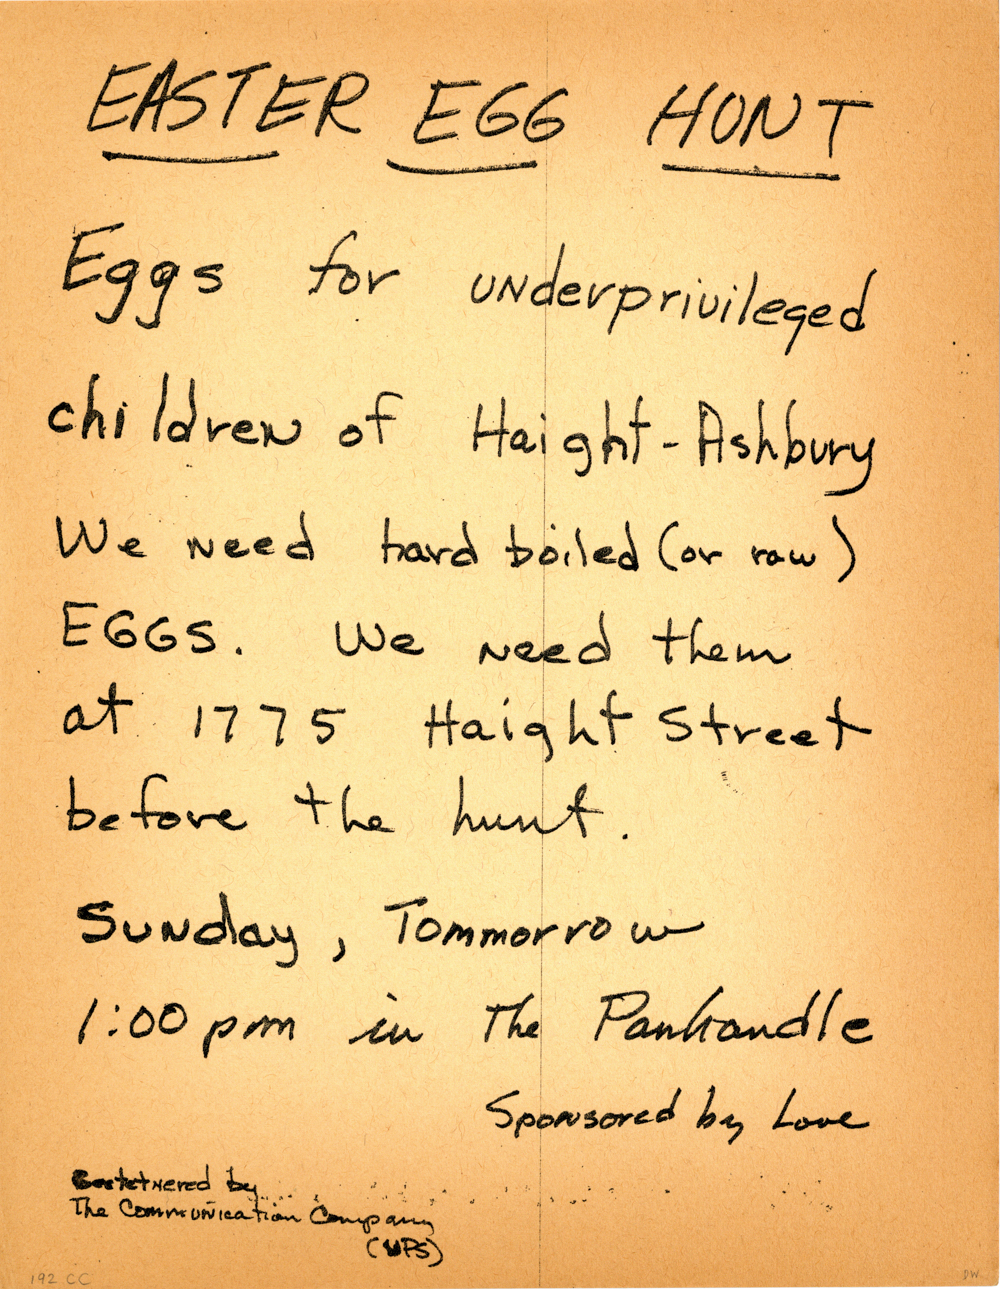 EASTER EGG HUNT
Eggs for underprivileged
children of Haight-Ashbury
We need hard boiled (or raw)
EGGS. We need them
at 1775 Haight Street
before the hunt.
Sunday, Tommorrow
1:00 pm in The Panhandle
Sponsored by Love
Gestetnered by
The Communication Company
(UPS)
192 CC
DW